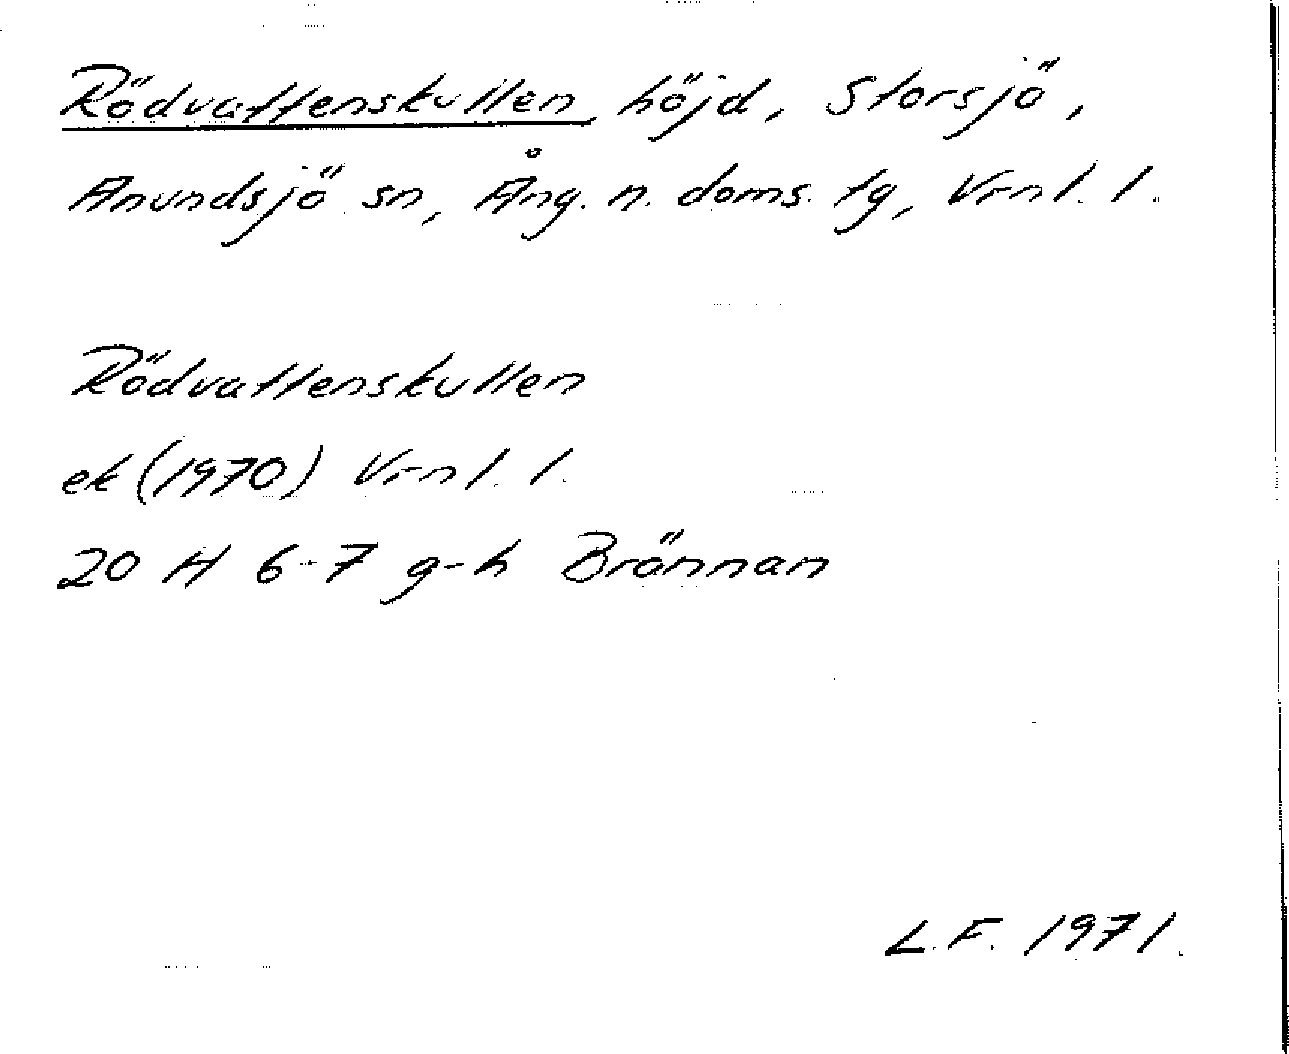 Rödvattenskullen, höjd, Storsjö,
Anundsjö sn, Ång. n. doms. tg, Vrnl. l.
Rödvattenskullen
ek (1970) Vrnl. l.
20 H 6-7 g-h Brännan
L.F. 1971.